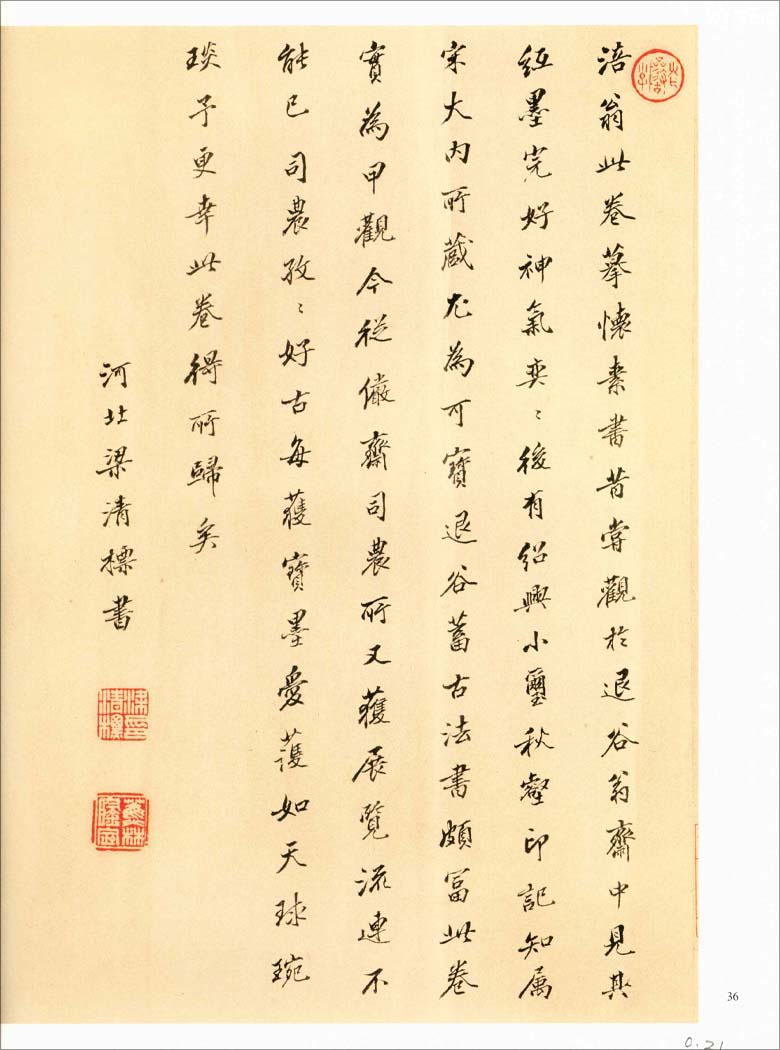 涪翁此卷摹懷素書昔嘗觀於退谷翁齋中見其
紙墨完好神氣奕〻後有紹興小璽秋壑印記知属
宋大内所蔵尤為可寶退谷蓄古法書頗冨此卷
實為甲觀今從儼齋司農所又獲展覽流連不
能已司農孜〻好古每蒦寶墨愛護如天球琬
琰予更幸此卷得所歸矣
河北梁清標書
36
0.21